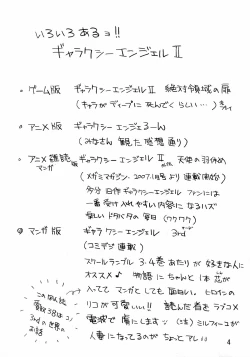 いろいろあるョ!!
ギャラクシーエンジェルⅡ
。ゲーム版 ギャラクシーエンジェルⅡ 絶対領域の扉
(キャラがディープに死んでくらしい…)
。アニメ版 ギャラクシーエンジェ3~ん
(みなさん観た感想通り)
。アニメ雑誌版 ギャラクシーエンジェルⅡ 天使の羽休め
(メガミマガジン、2007.1月号より連載開始)
今分 旧作ギャラクシーエンジェルファンには
一番受け入れやすい内容になるハズ
楽しいドタバタの毎日(ワクワク)
◎マンガ版 ギャラクシーエンジェル 3rd
(コミデジ連載)
スクールランブル 3.4巻あたりが好きな人に
オススメ♪ 物語にちゃんと1本芯が
入っててマンガとしても面白い。ヒロインの
リコが可愛いい!! 読んだ者をラブコメ
電波で虜にしますッ (注)ミルフィーユが
人妻になってるのがちょっと
このぽん絵
3rdの世界の
お話
4